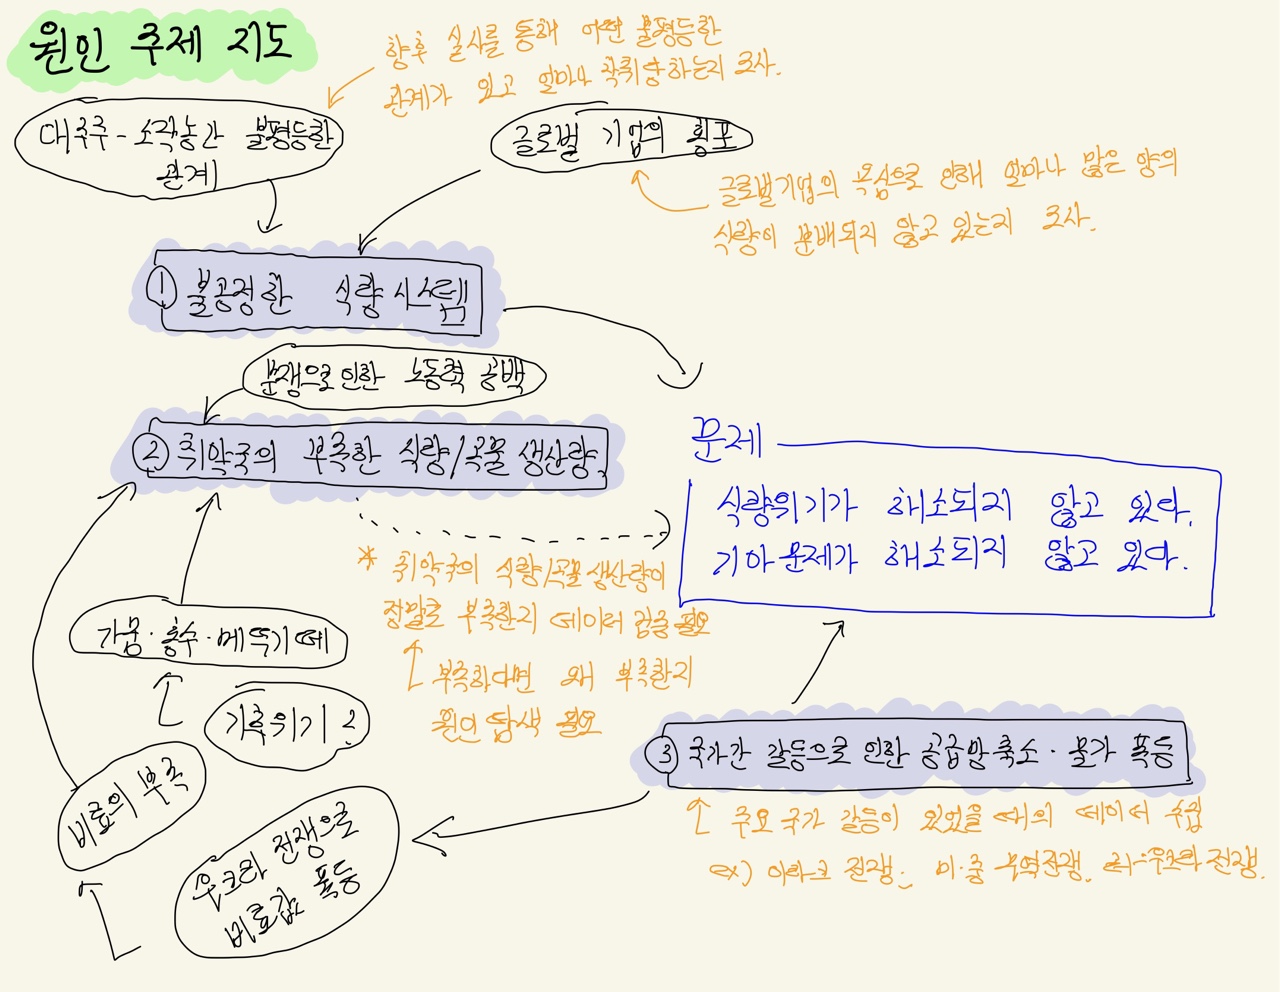 원인 주제 지도
향후 실사를 통해 어떤 불평등한
관계가 있고 얼마나 착취당하는지 조사.
대주주-소작농간 불평등한
관계
글로벌 기업의 횡포
글로벌기업의 욕심으로 인해 얼마나 많은 양의
식량이 분배되지 않고 있는지 조사.
① 불공정한 식량시스템
분쟁으로 인한 노동력 공백
② 취약국의 부족한 식량/곡물 생산량
문제
식량위기가 해소되지 않고 있다.
기아문제가 해소되지 않고 있다.
* 취약국의 식량/곡물 생산량이
정말로 부족한지 데이터 검증 필요
부족하다면 왜 부족한지
원인 탐색 필요
가뭄·홍수·메뚜기떼
기후위기?
비료의 부족
우크라 전쟁으로
비료값 폭등
③ 국가간 갈등으로 인한 공급망 축소·물가 폭등
주요 국가 갈등이 있었을 때의 데이터 수집
ex) 이라크 전쟁, 미·중 무역전쟁, 러-우크라 전쟁.